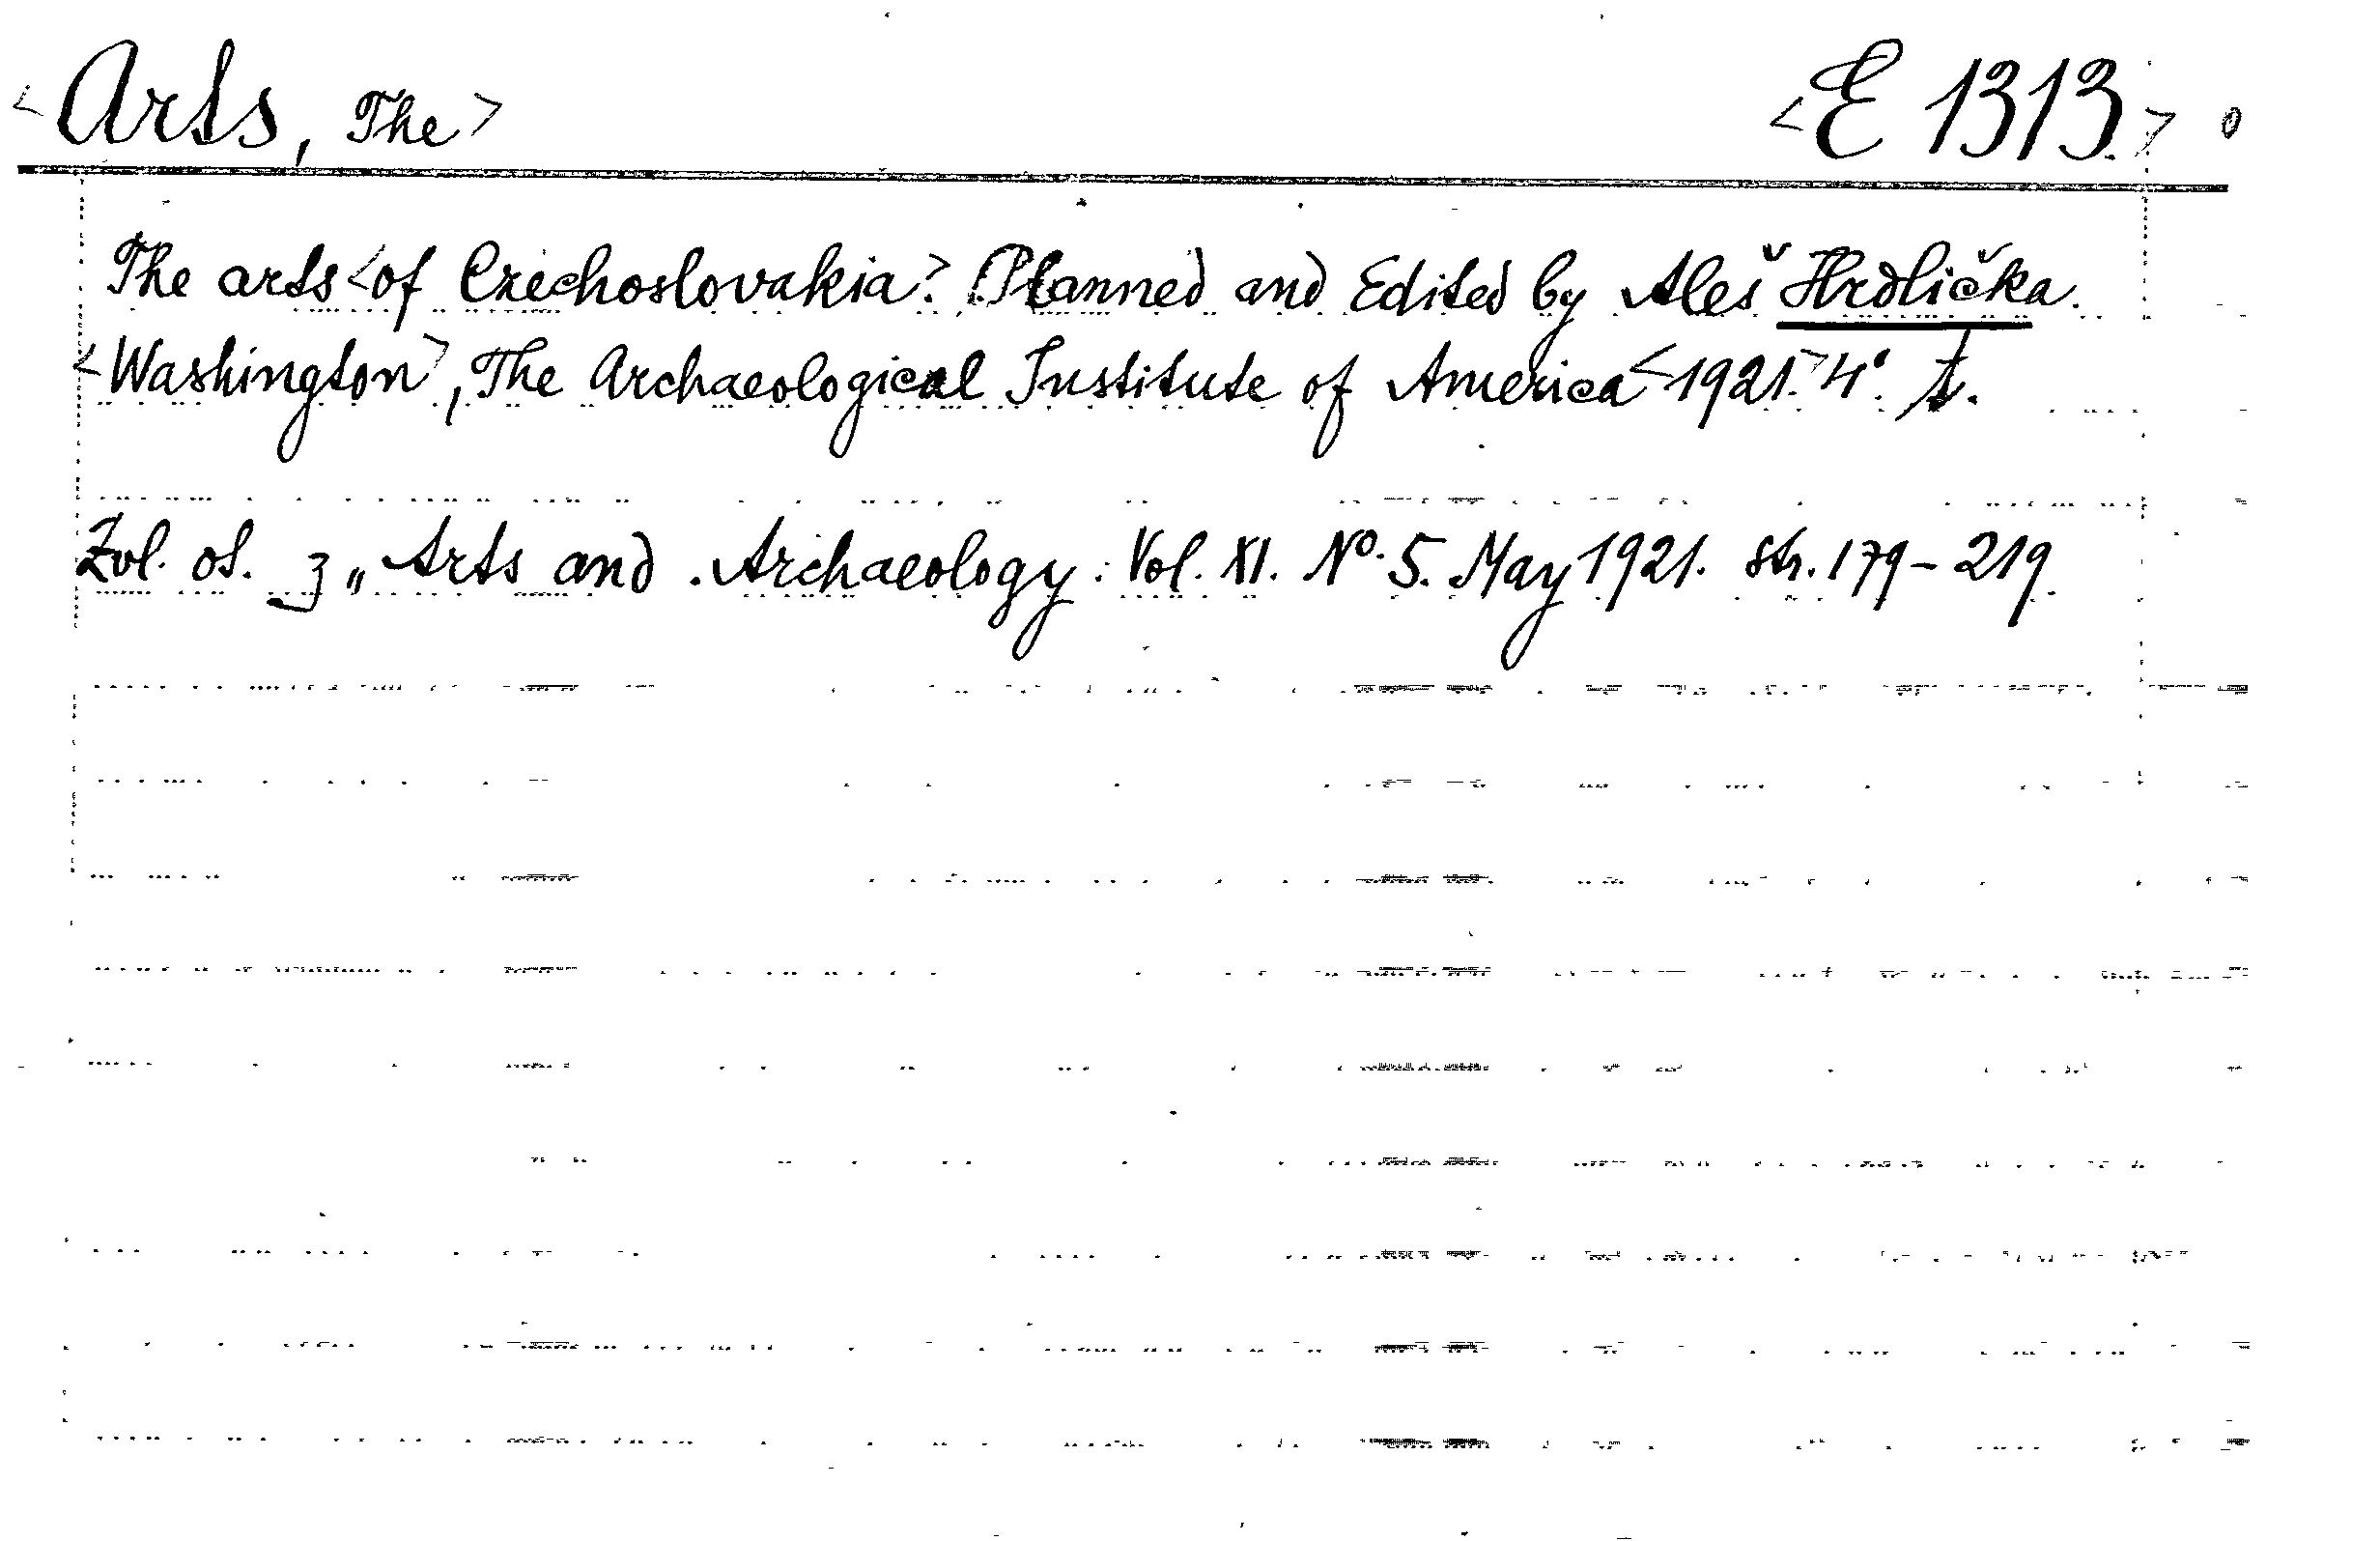 <Arts, The> <E 1313.>
The arts <of Czechoslovakia>. Planned and Edited by Aleš Hrdlička.
<Washington>, The Archaeological Institute of America <1921.> 4°.
Zvl. ot. z „Arts and Archaeology: Vol. XI. No. 5. May 1921. str. 179-219.